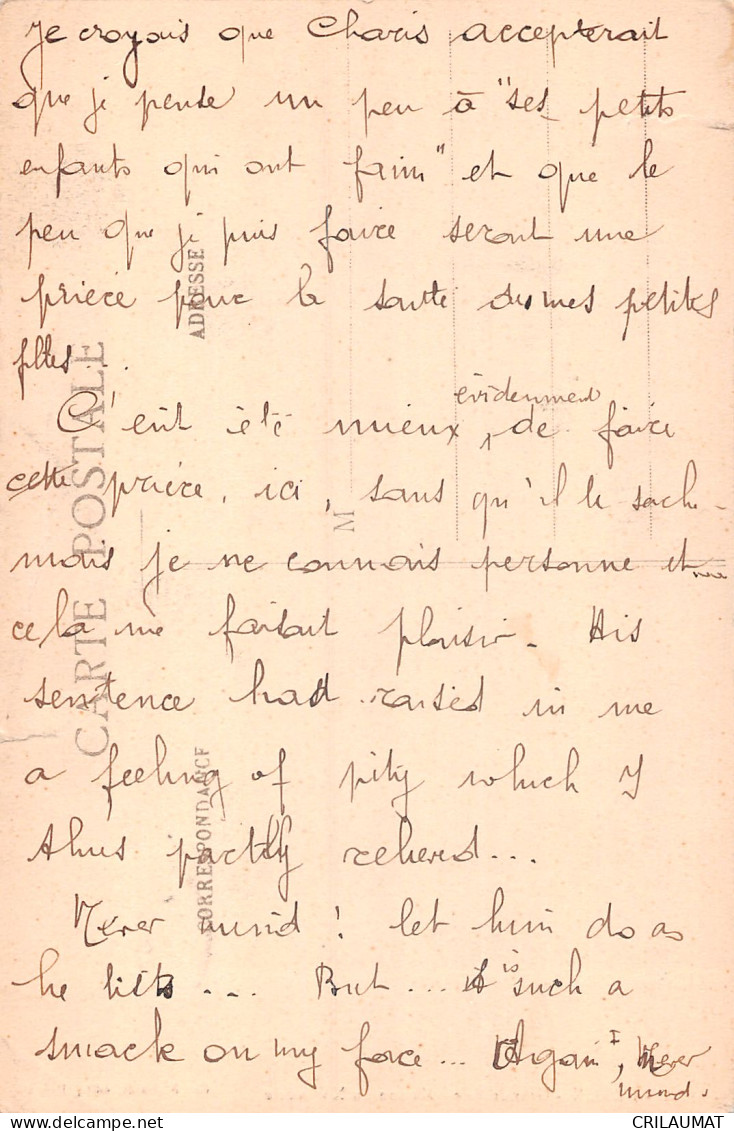 Je croyais que Charis accepterait
que je pense un peu à "ses petits
enfants qui ont faim" et que le
peu que je puis faire serait une
prière pour la santé de mes petites
filles...
C'eût été mieux, évidemment de faire
cette prière, ici, sans qu'il le sache -
mais je ne connais personne et
cela me faisait plaisir - His
sentence had raised in me
a feeling of pity which I
thus partly relieved...
Never mind! let him do as
he lists... But... it is such a
smack on my face... Again, I Never
mind.
CARTE POSTALE
CORRESPONDANCE
ADRESSE
M
CRILAUMAT